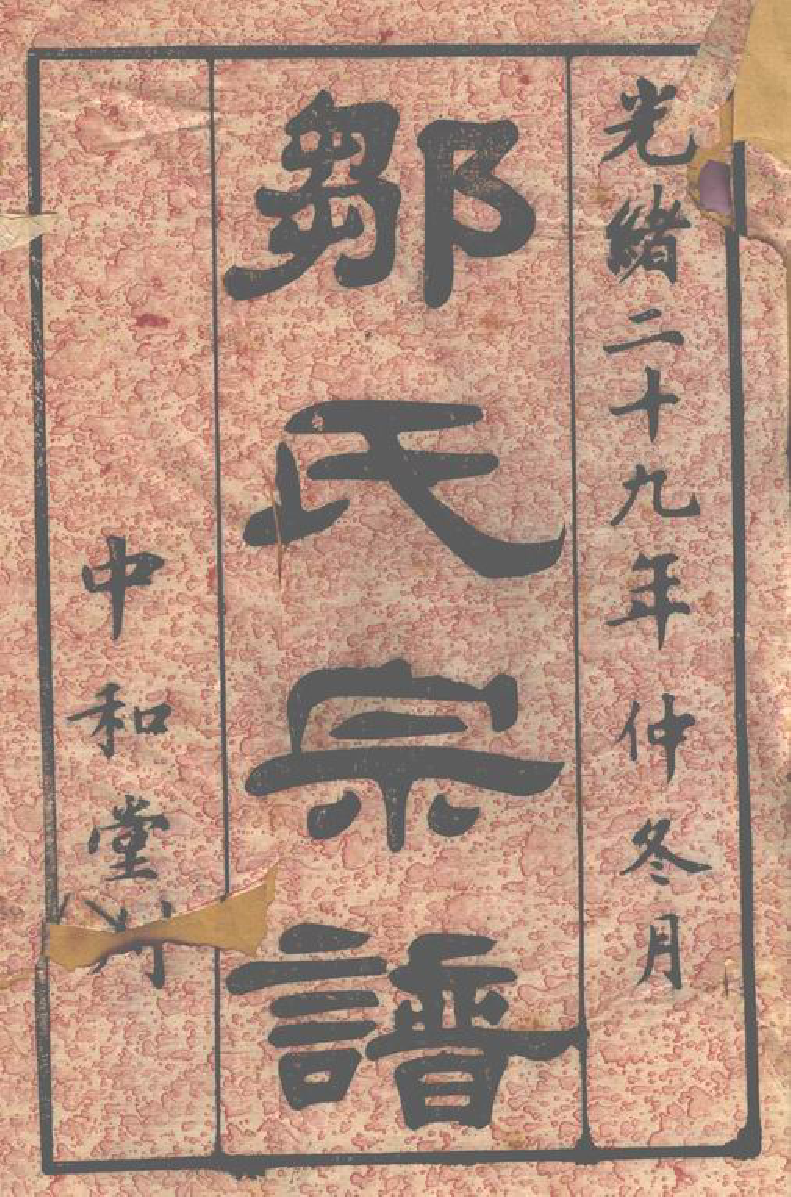 光緒二十九年仲冬月
鄒氏宗譜
中和堂